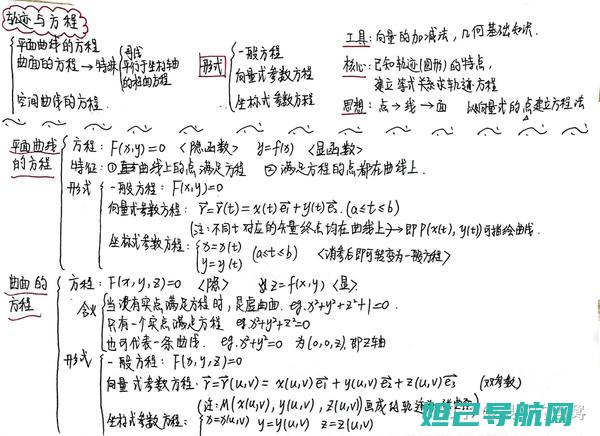 轨迹与方程
平面曲线的方程
曲面的方程 → 特殊
球
平行于坐标轴
的柱面方程
空间曲线的方程
形式
一般方程
向量式参数方程
坐标式参数方程
工具:向量的加减法,几何基础知识.
核心:已知轨迹(图形)的特点,
建立等式关系求轨迹方程
思想:点→线→面 以向量式的点建立方程法
平面曲线
的方程
方程:F(x,y)=0 <隐函数> y=f(x) <显函数>
特征:①曲线上的点满足方程 ②满足方程的点都在曲线上.
形式
一般方程:F(x,y)=0
向量式参数方程:r⃗=r⃗(t)=x(t)e⃗₁+y(t)e⃗₂.(a≤t≤b)
(注:不同t对应的矢量终点均在曲线上)→即P(x(t),y(t))可描绘曲线.
坐标式参数方程:
x=x(t)
y=y(t)
(a≤t≤b) <消参后即可转变为一般方程>
曲面的
方程
方程:F(x,y,z)=0 <隐> z=f(x,y) <显>
含义
当没有实点满足方程时,是虚曲面. eg.x²+y²+z²+1=0.
只有一个实点满足方程 eg.x²+y²+z²=0
也可代表一条曲线. eg.x²+y²=0 为(0,0,z),即Z轴
形式
一般方程:F(x,y,z)=0
向量式参数方程:r⃗=r⃗(u,v)=x(u,v)e⃗₁+y(u,v)e⃗₂+z(u,v)e⃗₃ (双参数)
(注:M(x(u,v),y(u,v),z(u,v))画成的轨迹
坐标式参数方程:
x=x(u,v) y=y(u,v) z=z(u,v)
妲己导航网